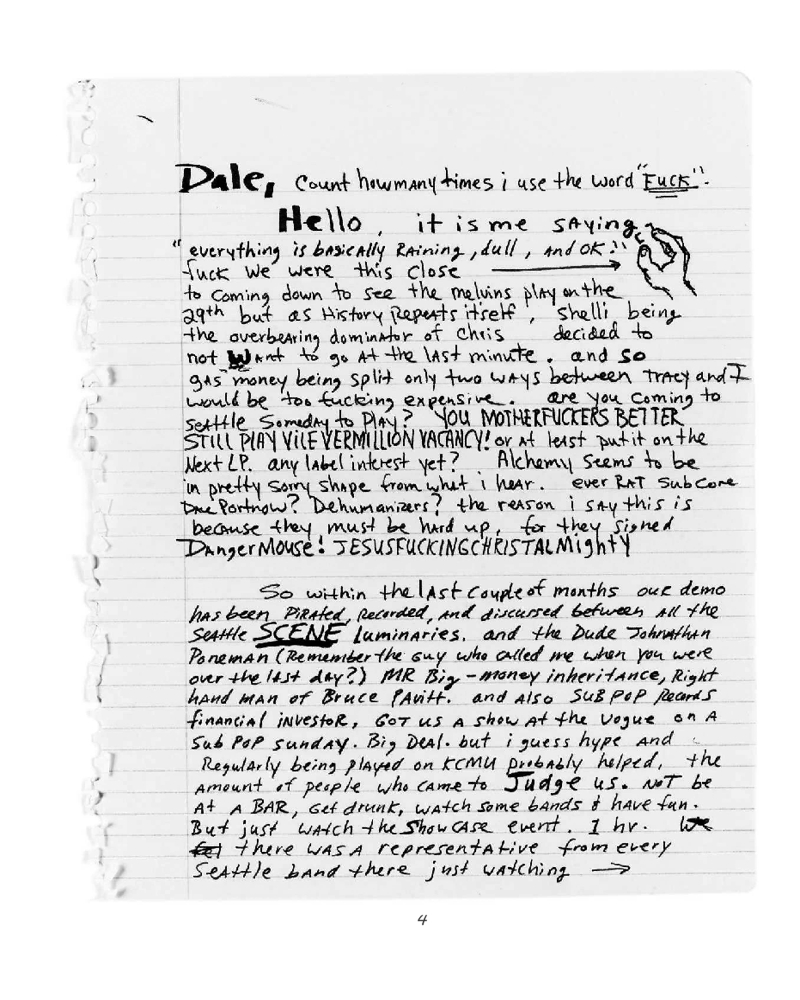 Dale, Count how many times i use the word "Fuck".
Hello, it is me saying
"everything is basically Raining, dull, and OK."
fuck we were this close
to coming down to see the melvins play on the
29th but as History Repeats itself, shelli being
the overbearing dominator of Chris decided to
not Want to go at the last minute. and so
gas money being split only two ways between Tracy and I
would be too fucking expensive. are you coming to
seattle someday to Play? YOU MOTHERFUCKERS BETTER
STILL PLAY VILE VERMILLION VACANCY! or at least put it on the
Next LP. any label interest yet? Alchemy seems to be
in pretty sorry shape from what i hear. ever RAT Subcore
Portnow? Dehumanizers? the reason i say this is
because they must be hard up, for they signed
DangerMouse! JESUSFUCKINGCHRISTALMighty
So within the last couple of months our demo
has been PiRated, Recorded, and discussed between all the
Seattle SCENE luminaries. and the Dude Johnathan
Poneman (Remember the guy who called me when you were
over the last day?) MR Big-money inheritance, Right
hand man of Bruce Pavitt. and also SUB POP Records
financial investor, Got us a show at the Vogue on a
Sub Pop Sunday. Big Deal. but i guess hype and
Regularly being played on KCMU probably helped, the
amount of people who came to Judge us. NOT be
at a BAR, Get drunk, watch some bands & have fun.
But just watch the showcase event. 1 hr. We
there was a representative from every
Seattle band there just watching →
4